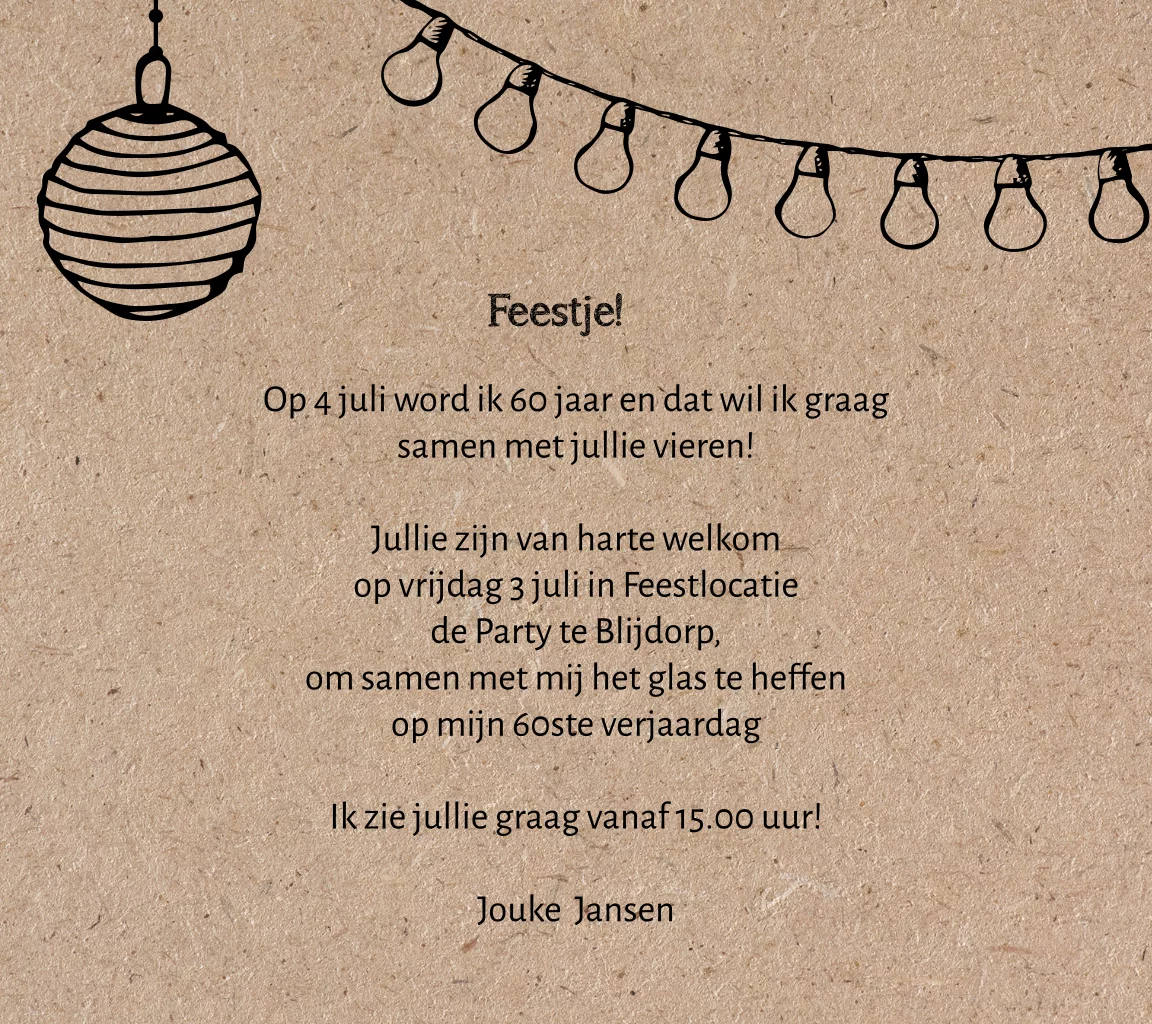 Feestje!
Op 4 juli word ik 60 jaar en dat wil ik graag
samen met jullie vieren!
Jullie zijn van harte welkom
op vrijdag 3 juli in Feestlocatie
de Party te Blijdorp,
om samen met mij het glas te heffen
op mijn 60ste verjaardag
Ik zie jullie graag vanaf 15.00 uur!
Jouke Jansen